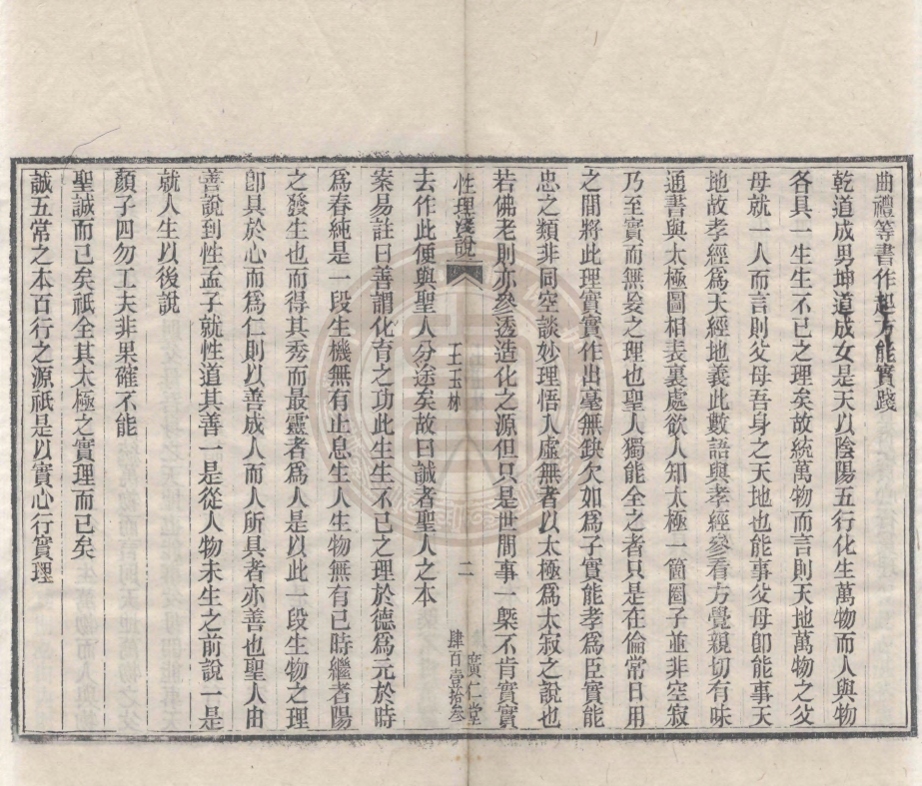 曲禮等書作起方能實踐
乾道成男坤道成女是天以陰陽五行化生萬物而人與物
各具一生生不已之理矣故統萬物而言則天地萬物之父
母就一人而言則父母吾身之天地也能事父母卽能事天
地故孝經爲天經地義此數語與孝經參看方覺親切有味
通書與太極圖相表裏處欲人知太極一箇圈子並非空寂
乃至實而無妄之理也聖人獨能全之者只是在倫常日用
之間將此理實實作出毫無缺欠如爲子實能孝爲臣實能
忠之類非同空談妙理悟入虛無者以太極爲太寂之說也
若佛老則亦參透造化之源但只是世間事一槩不肯實實
去作此便與聖人分途矣故曰誠者聖人之本
性理淺說 二 廣仁堂 肆百壹拾叁
案易註曰善謂化育之功此生生不已之理於德爲元於時
爲春純是一段生機無有止息生人生物無有已時繼者陽
之發生也而得其秀而最靈者爲人是以此一段生物之理
卽具於心而爲仁則以善成人而人所具者亦善也聖人由
善說到性孟子就性道其善一是從人物未生之前說一是
就人生以後說
顏子四勿工夫非果確不能
聖誠而已矣祇全其太極之實理而已矣
誠五常之本百行之源祇是以實心行實理